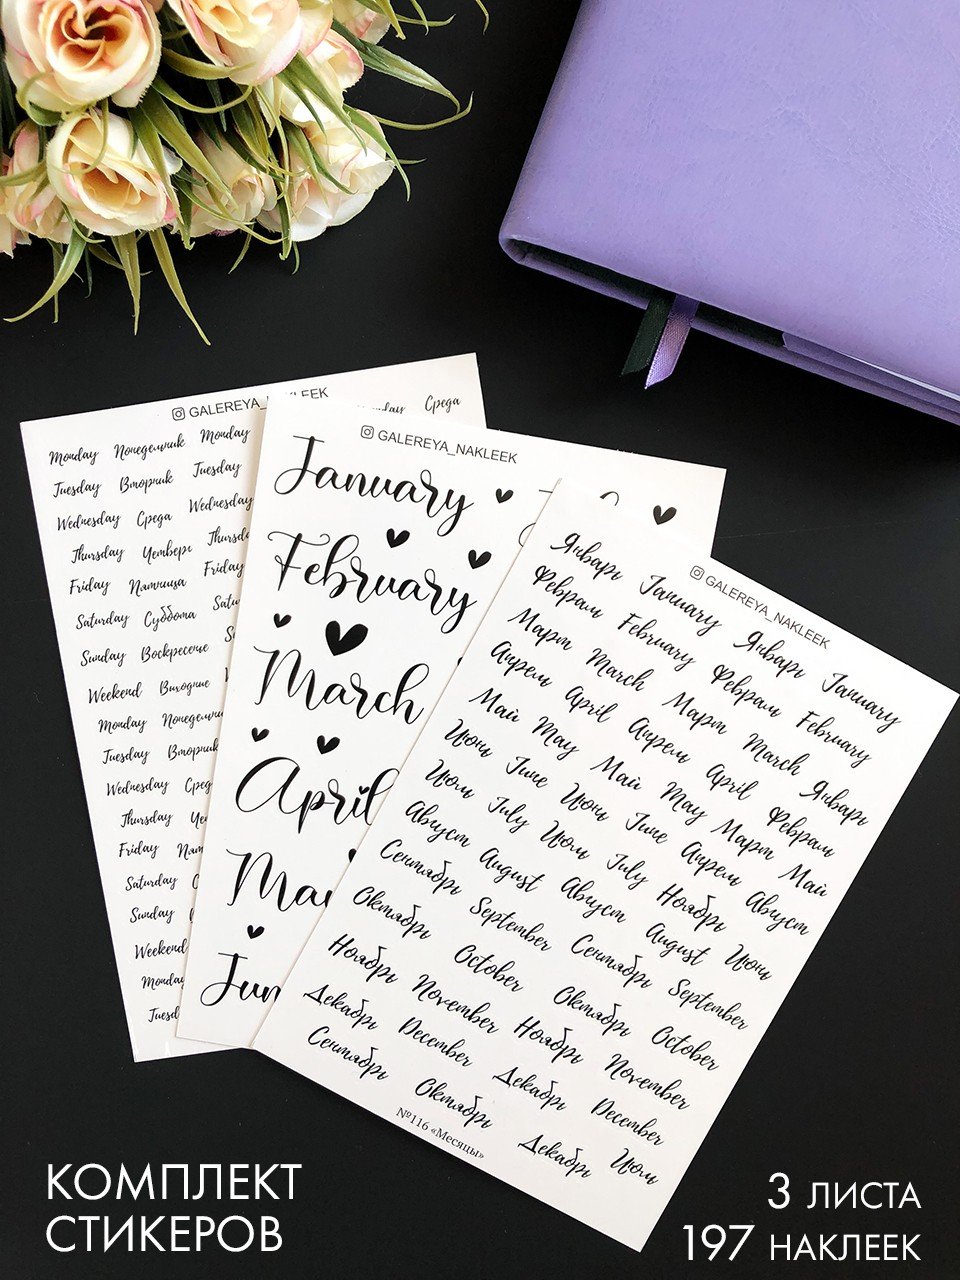 GALEREYA_NAKLEEK
Среда
Monday Понедельник Monday
Tuesday Вторник Tuesday
Wednesday Среда Wednesday
Thursday Четверг
Friday Пятница Friday
Saturday Суббота
Sunday Воскресенье
Weekend Выходные
Monday
Tuesday Вторник
Wednesday
Thursday
Friday
Saturday
Sunday
Weekend
Monday
GALEREYA_NAKLEEK
January
February
March
April
GALEREYA_NAKLEEK
Январь January Январь January
Февраль February Февраль February
Март March Март March Январь
Апрель April Апрель April Февраль
Май May Май May Март Май
Июнь June Июнь June Апрель Август
Июль July Июль July Ноябрь Июнь
Август August Август August
Сентябрь September Сентябрь September
Октябрь October Октябрь October
Ноябрь November Ноябрь November
Декабрь December Декабрь December
Сентябрь Октябрь Декабрь Июль
№116 «Месяцы»
КОМПЛЕКТ
СТИКЕРОВ
3 ЛИСТА
197 НАКЛЕЕК